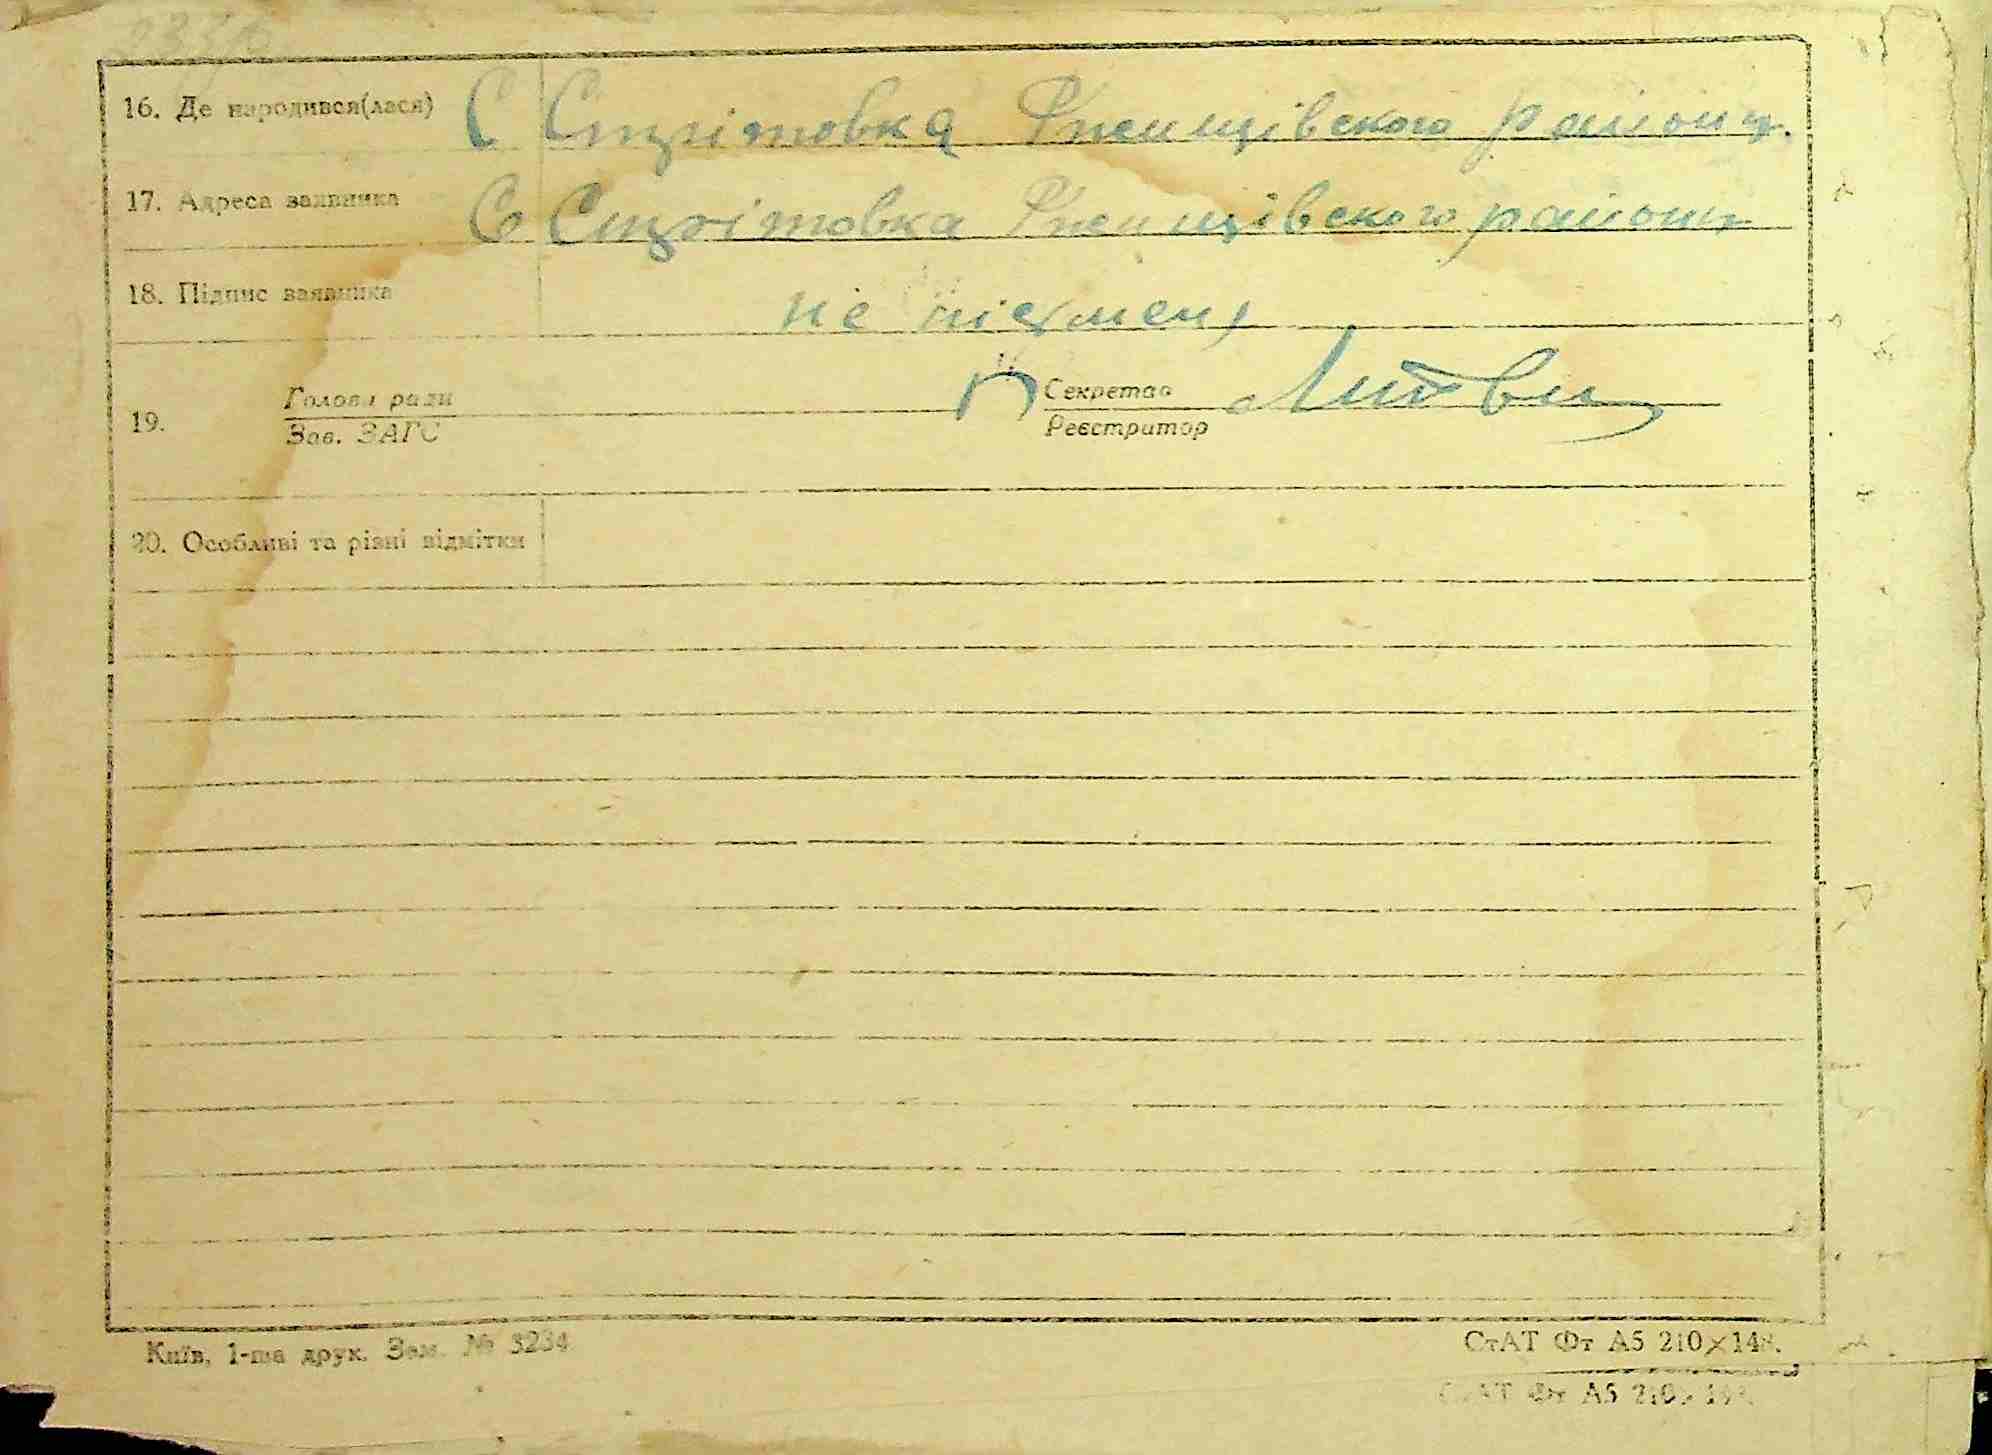 16. Де народився(лася) С Стрітовка Ржищівского району.
17. Адреса заявника С Стрітовка Ржищівского району
18. Підпис заявника не пісмену
19. Голова ради Секретар Литвин
Зав. ЗАГС Реєстратор
20. Особливі та різні відмітки
Київ, 1-ша друк. Зам. № 3234
СтАТ Фт А5 210×148.
СтАТ Фт А5 210×148.